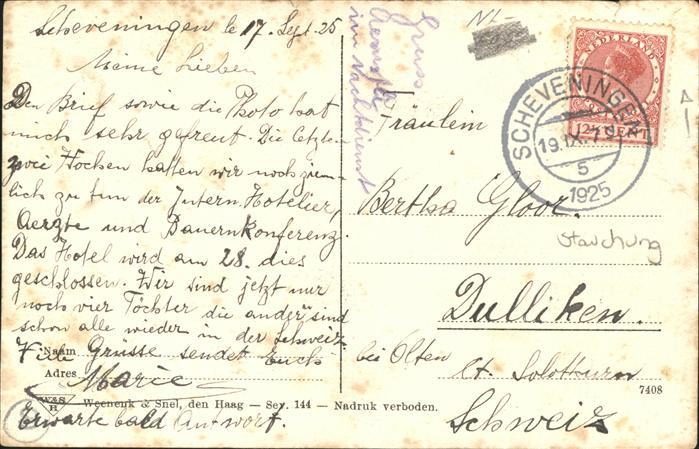 Scheveningen le 17. Sept. 25
Meine Lieben
Den Brief sowie die Photo hat
mich sehr gefreut. Die letzten
zwei Wochen hatten wir noch ziem-
lich zu tun der Intern. Hotelier,
Aerzte und Bauernkonferenz.
Das Hotel wird am 28. dies
geschlossen. Wir sind jetzt nur
noch vier Töchter die andern sind
schon alle wieder in der Schweiz.
Viele Grüsse sendet Euch
Naam
Adres
Marie
W&S
H
Weenenk & Snel, den Haag — Sey. 144 — Nadruk verboden.
Erwarte bald Antwort.
Gruss
im Nachtdienst
NL-
NEDERLAND
12½ CENT
SCHEVENINGEN
19.IX.7
5
1925
Fräulein
Bertha Gloor.
Stauchung
Dulliken.
bei Olten
Kt. Solothurn
7408
Schweiz